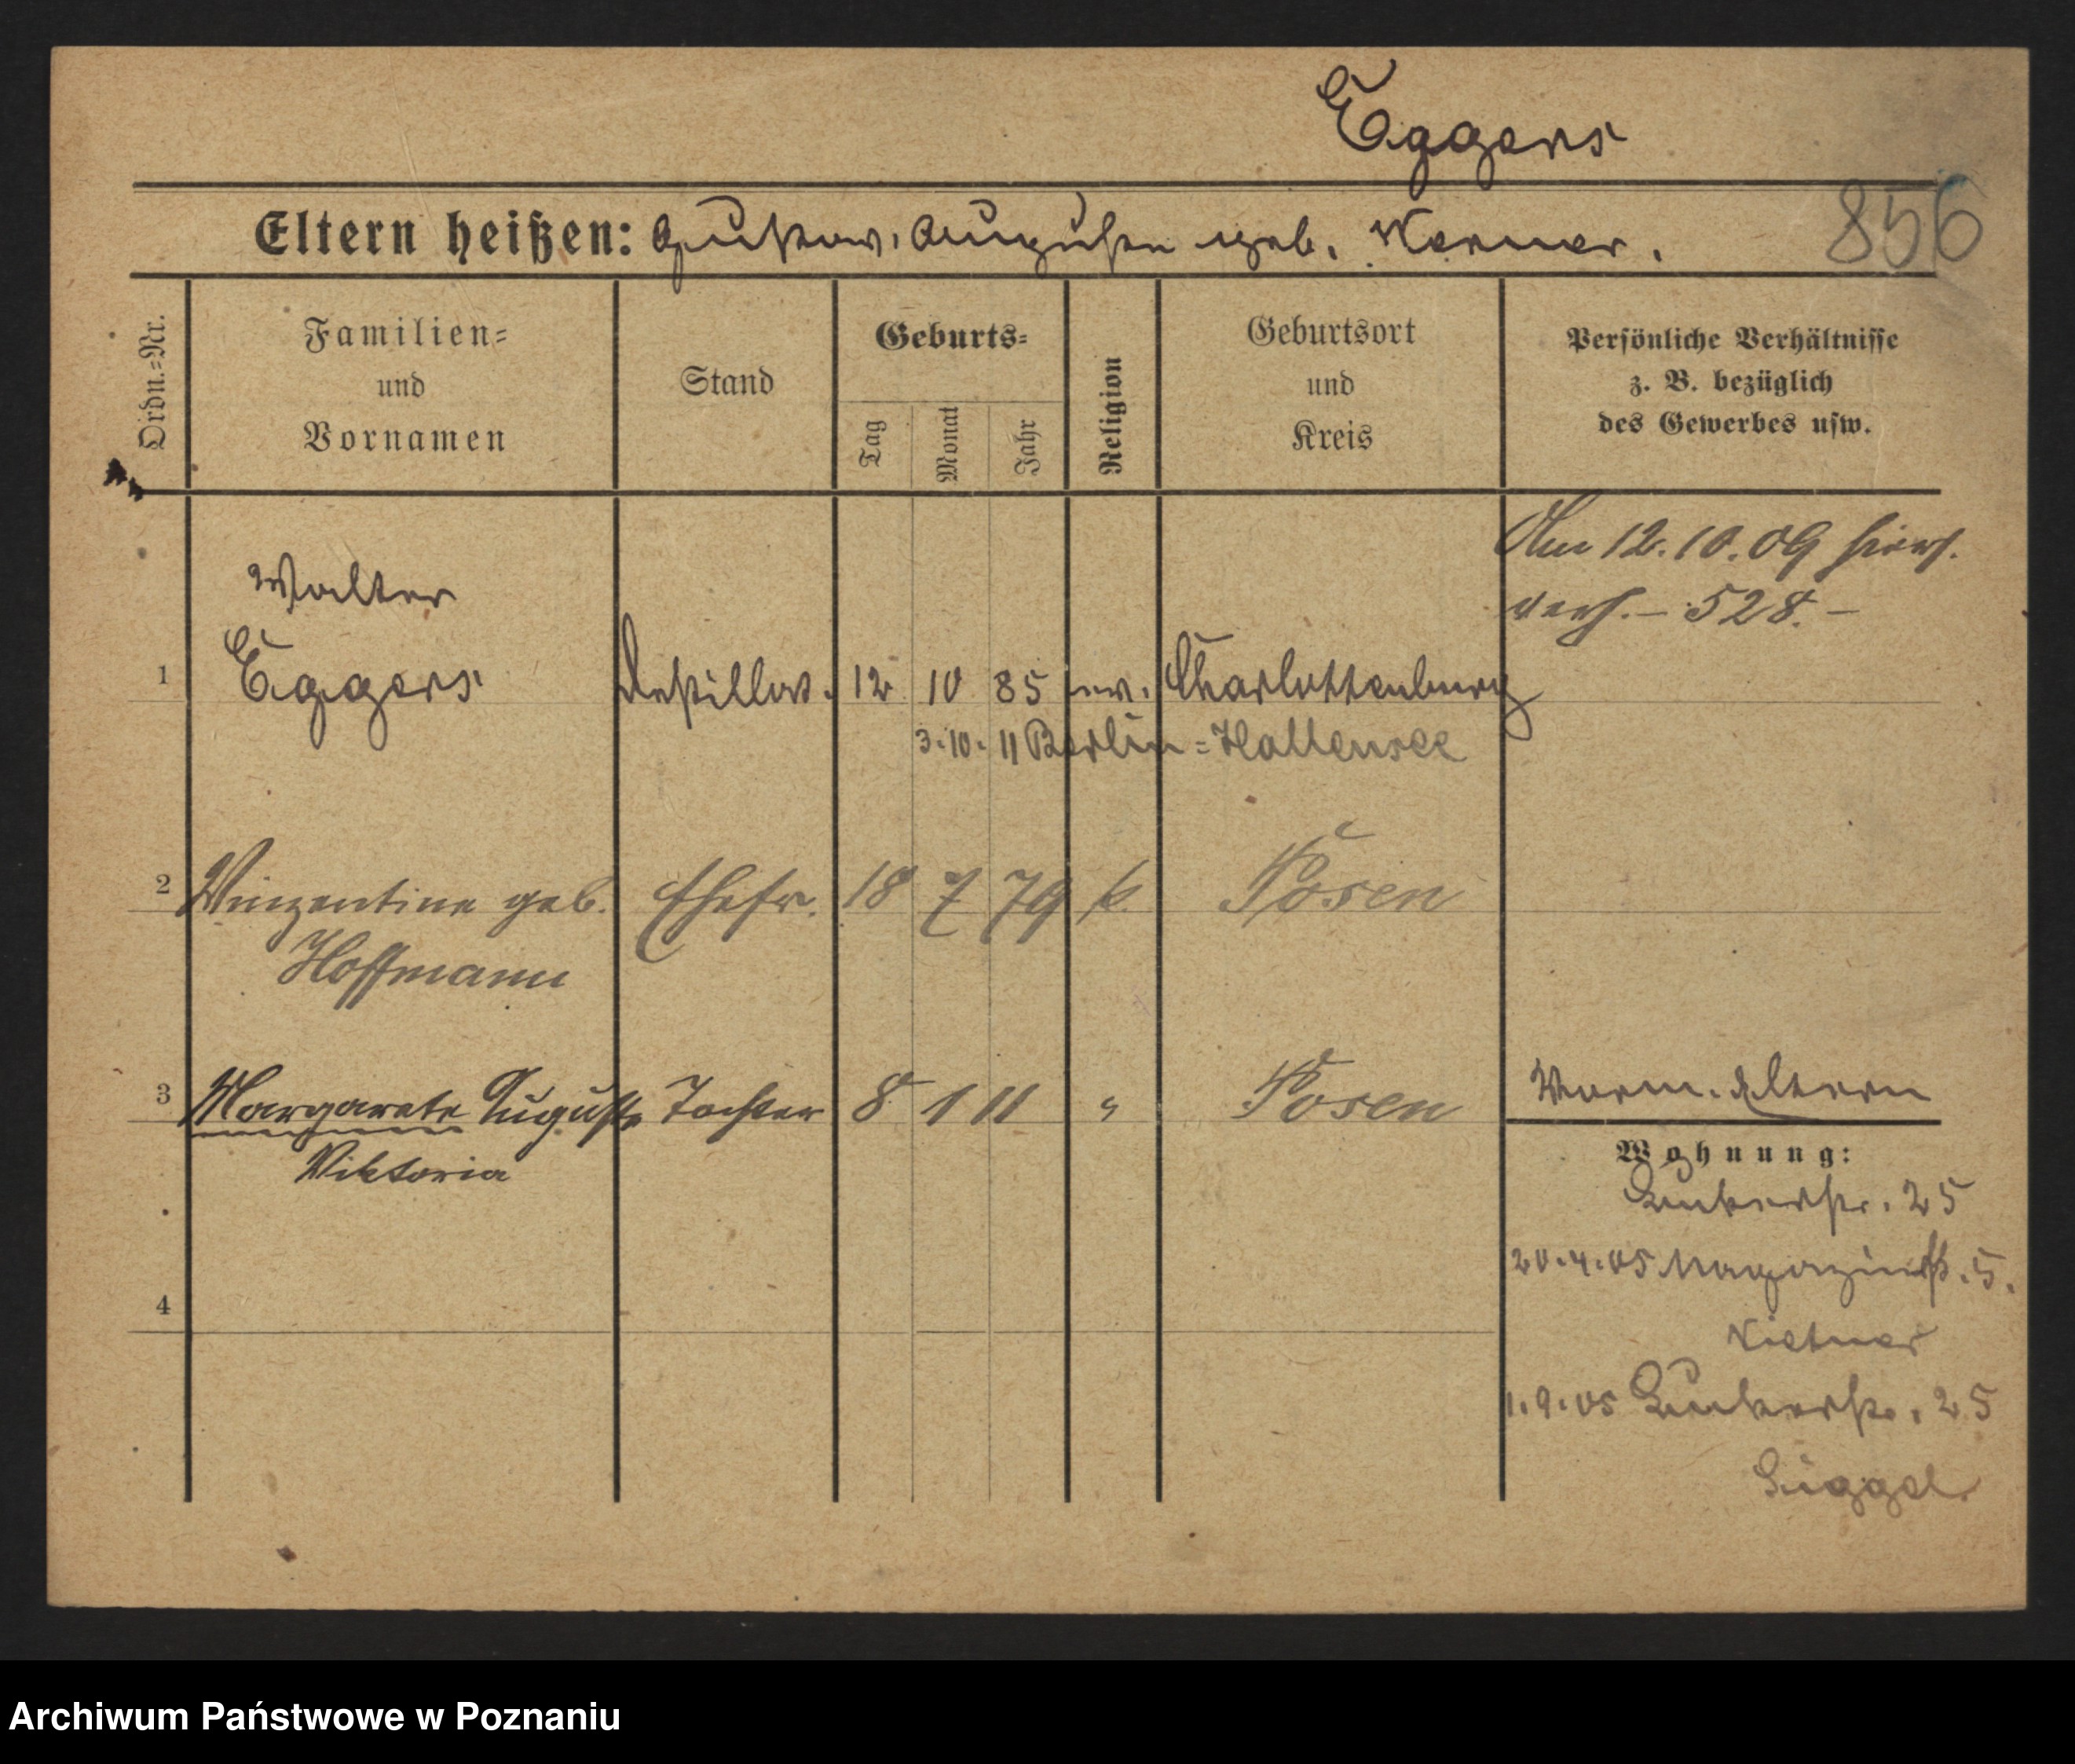 Eggers
Eltern heißen: Gustav, Auguste geb. Kerner.
856
Ordn.=Nr.
Familien=
und
Vornamen
Stand
Geburts=
Tag
Monat
Jahr
Religion
Geburtsort
und
Kreis
Persönliche Verhältnisse
z. B. bezüglich
des Gewerbes usw.
Am 12.10.09 hier
verh. – 528. –
Walter
1 Eggers Destillat. 12 10 85 ev. Charlottenburg
3.10.11 Berlin=Hallensee
2 Vinzentine geb. Ehefr. 18 7 79 k. Posen
Hoffmann
3 Margarete Auguste Tochter 8 1 11 " Posen
Viktoria
Eltern
Wohnung:
25
20.4.05 Magazinstr. 5.
1.9.05 25
4
Archiwum Państwowe w Poznaniu